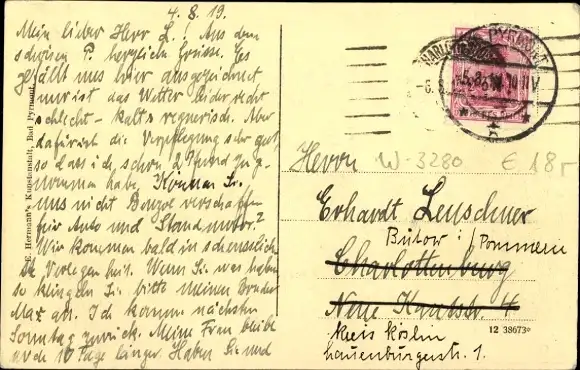 4.8.19.
Mein lieber Herr L.! Aus dem
schönen P. herzliche Grüsse. Es
gefällt uns hier ausgezeichnet
nur ist das Wetter leider recht
schlecht - kalt & regnerisch. Aber
dafür ist die Verpflegung sehr gut,
so dass ich schon 2 Pfund zuge-
nommen habe. Können Sie
uns nicht Benzol verschaffen
für Auto und Standmotor?
Wir kommen bald in scheussliche
Verlegenheit. Wenn Sie was haben
so klingeln Sie bitte meinen Bruder
Max an. Ich komme nächsten
Sonntag zurück. Meine Frau bleibt
noch 10 Tage länger. Haben Sie und
E. Hermann's Kunstanstalt, Bad Pyrmont.
PYRMONT
5.8.19 10-11V
Herrn W-3280 € 18,-
Erhardt Leuschner
Bütow i/Pommern
Charlottenburg
Neue Kantstr. 4
Kreis Köslin
Lauenburgerstr. 1.
12 38673